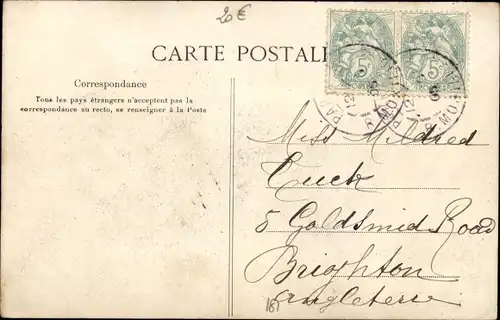 20€
CARTE POSTALE
Correspondance
Tous les pays étrangers n'acceptent pas la
correspondance au recto, se renseigner à la Poste
5 5
Miss Mildred
Tuck
5 Goldsmid Road
Brighton
Angleterre